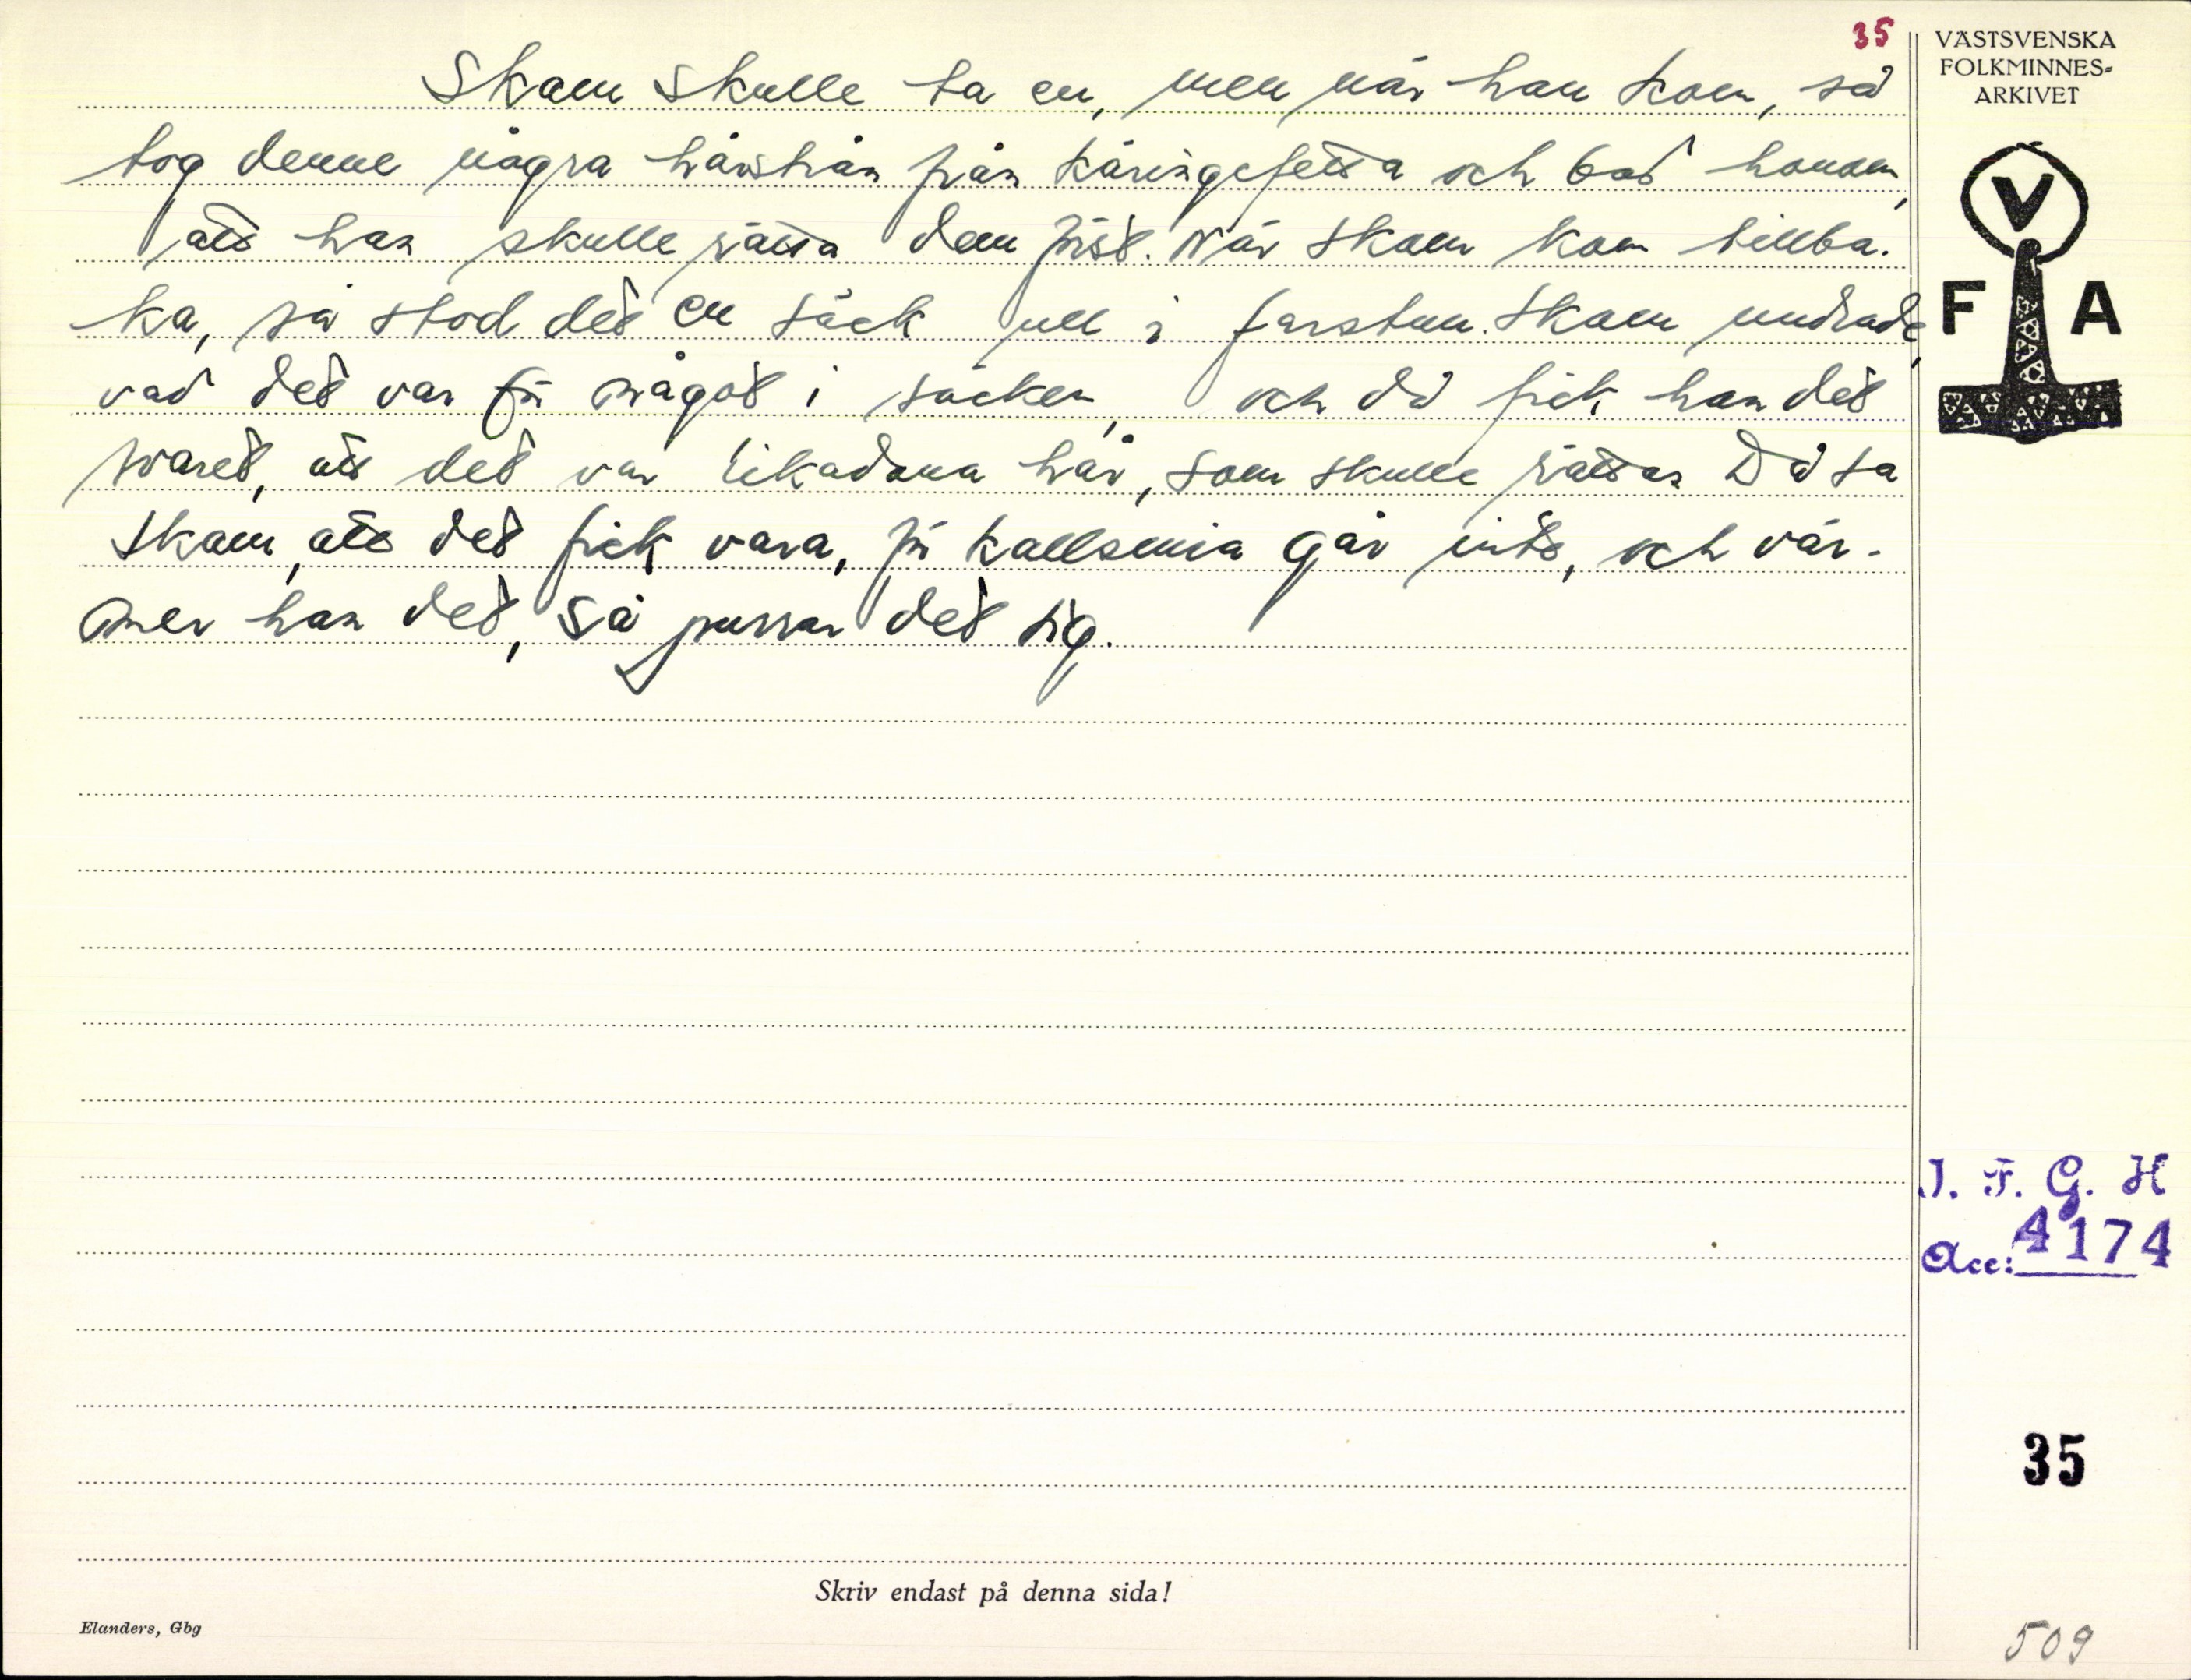 35
Skam skulle ta en, men när han kom, så
tog denne några hårstrån från käringefetta och bad honom,
att han skulle rätta dem först. När Skam kom tillba-
ka, så stod det en säck ull i farstun. Skam undrade,
vad det var för något i säcken, och då fick han det
svaret, att det var likadana hår, som skulle rättas Då sa
Skam, att det fick vara, för kallsmia går inte, och vär-
mer han det, så purrar det sig.
VÄSTSVENSKA
FOLKMINNES-
ARKIVET
V
F A
I. F. G. H
Acc: 4174
35
509
Skriv endast på denna sida!
Elanders, Gbg